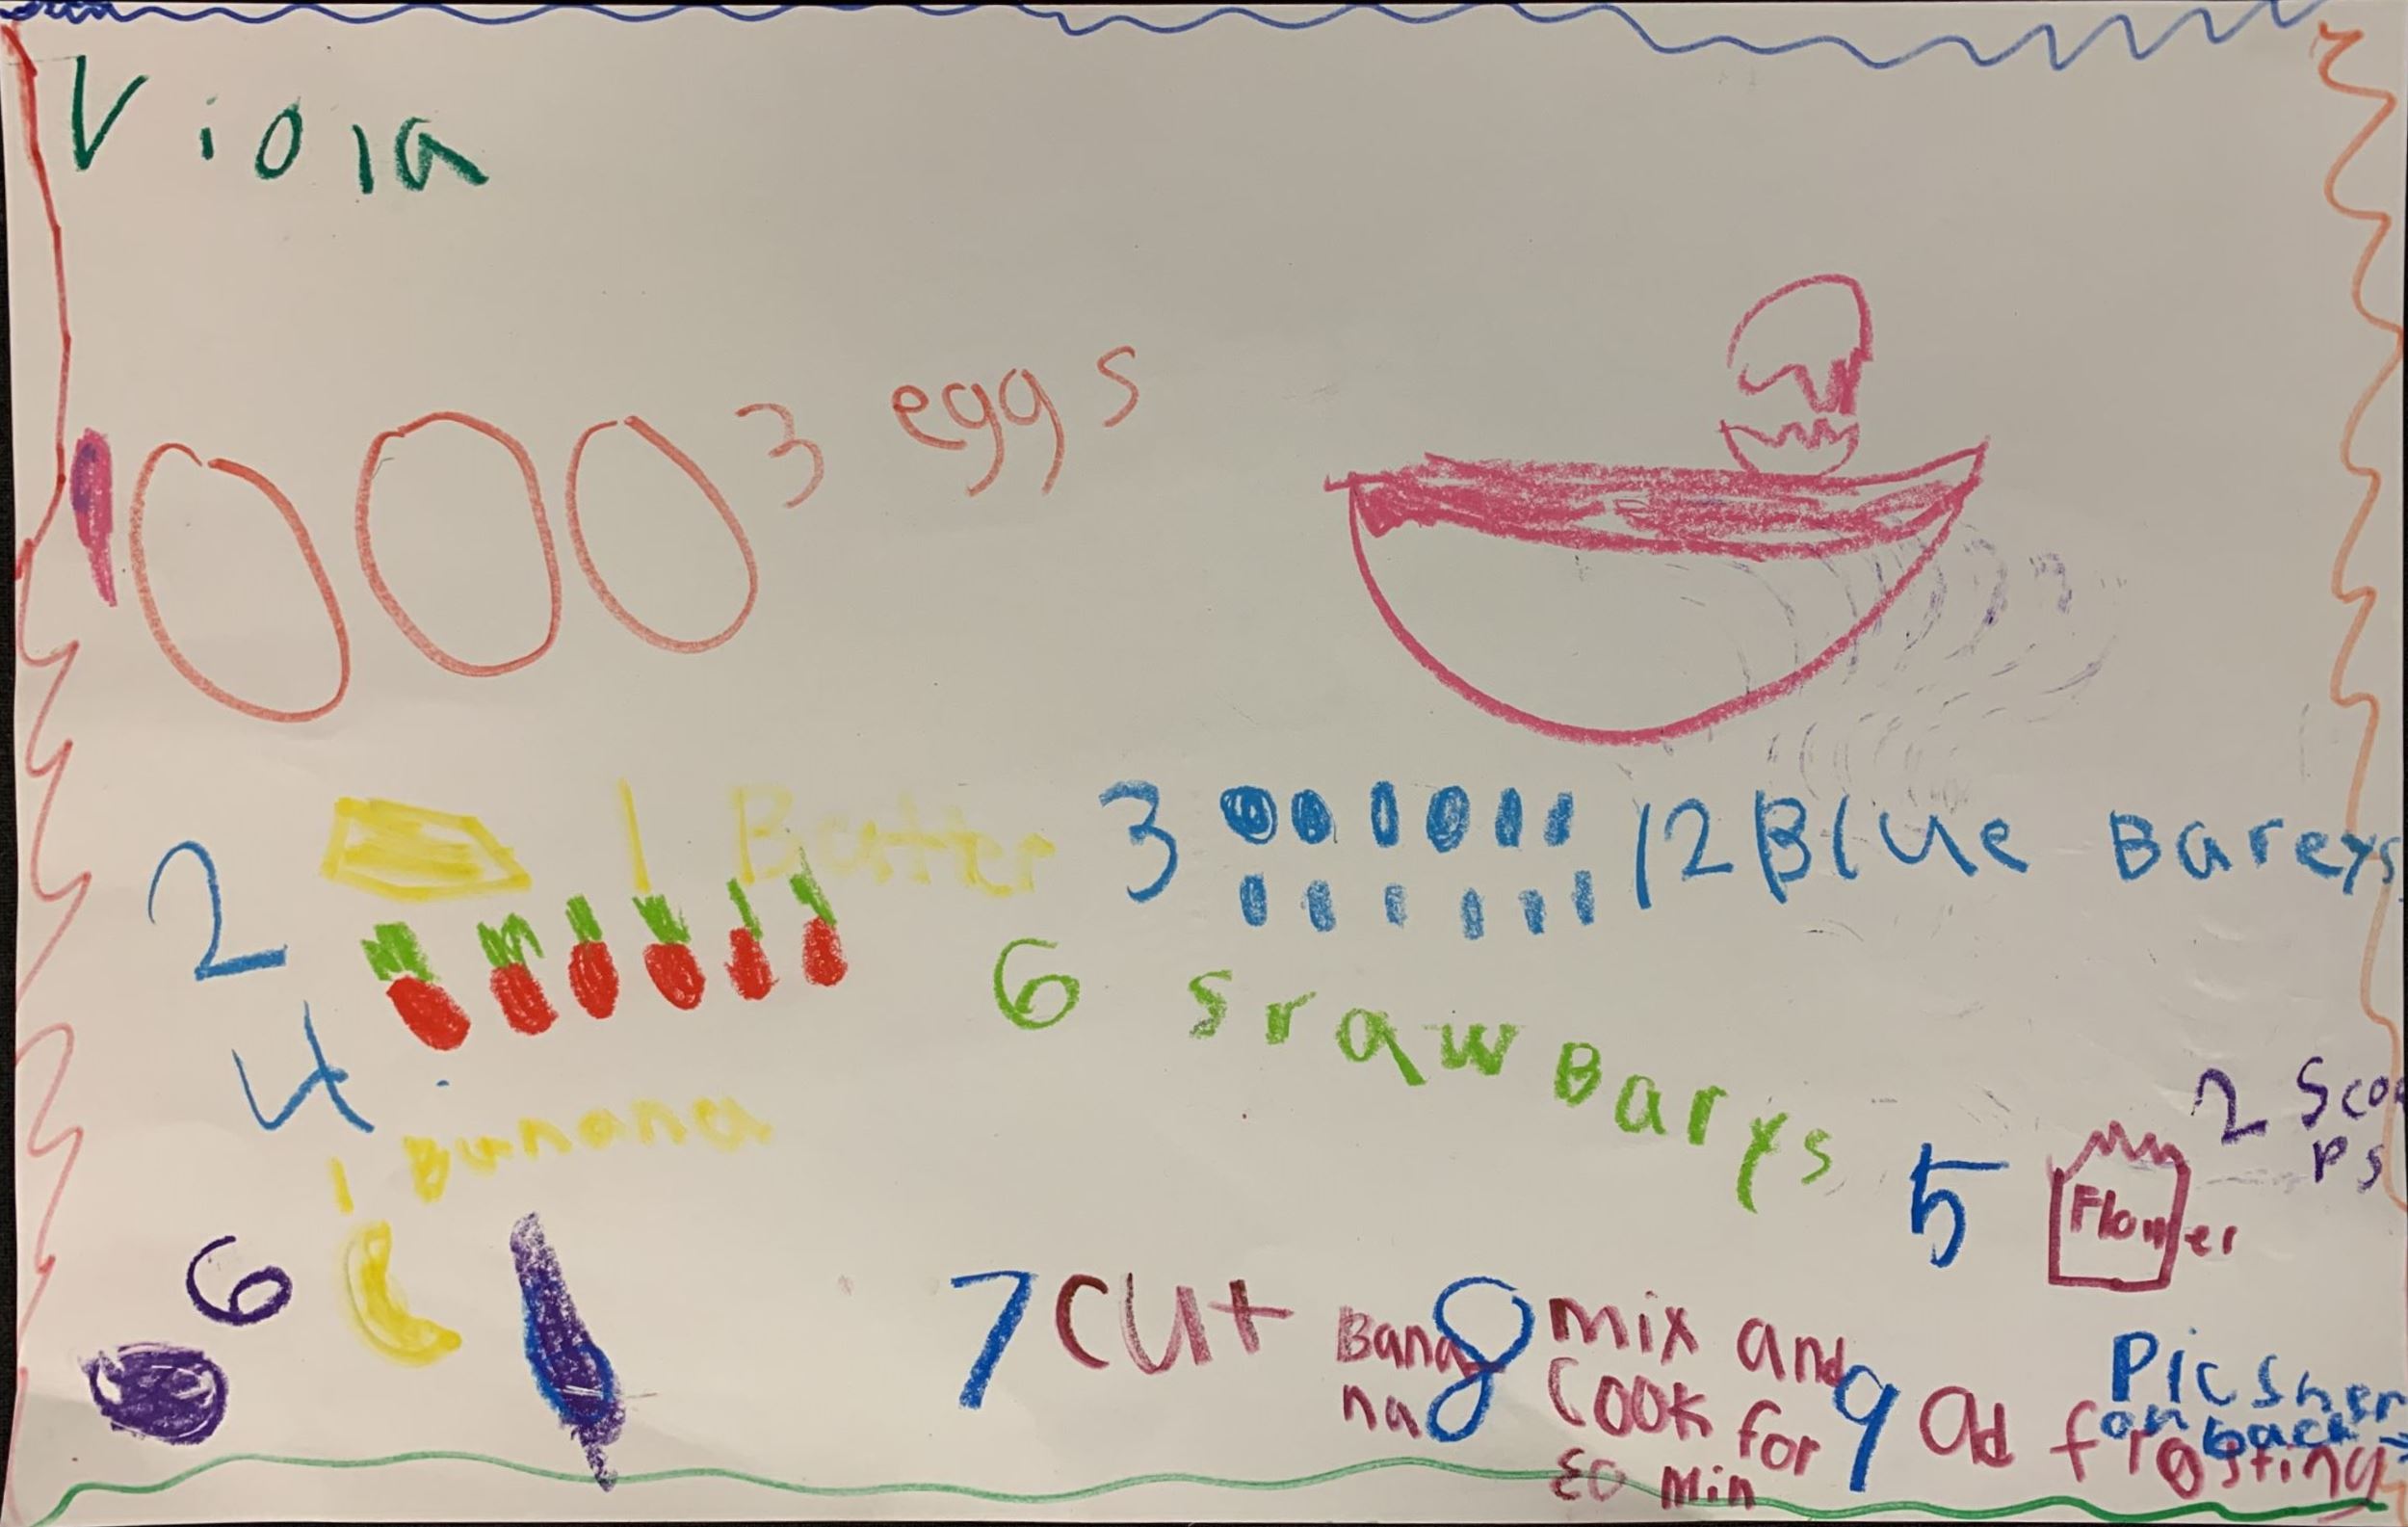 Viola
3 eggs
2 1 Butter
3 12 Blue Bareys
4 6 Sraw Barys
1 Banana
5 Flower 2 Scoo
Ps
6
7 cut Bana
na
8 mix and
Cook for
30 Min
9 ad frosting
Picsher
on back